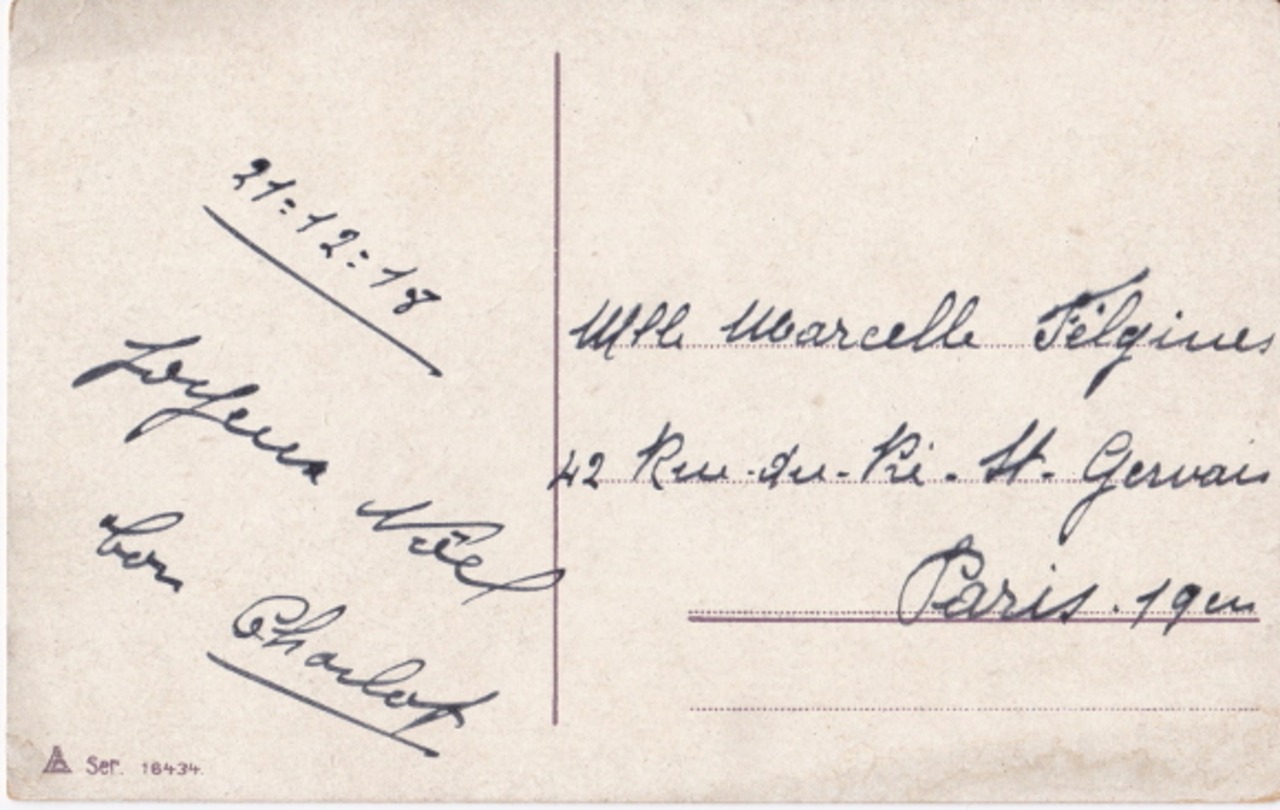 21=12=18
Joyeux Noël
bon
Charlot
Mlle Marcelle Félgines
42 Rue-du-Pré-St-Gervais
Paris. 19em
Ser. 18434.